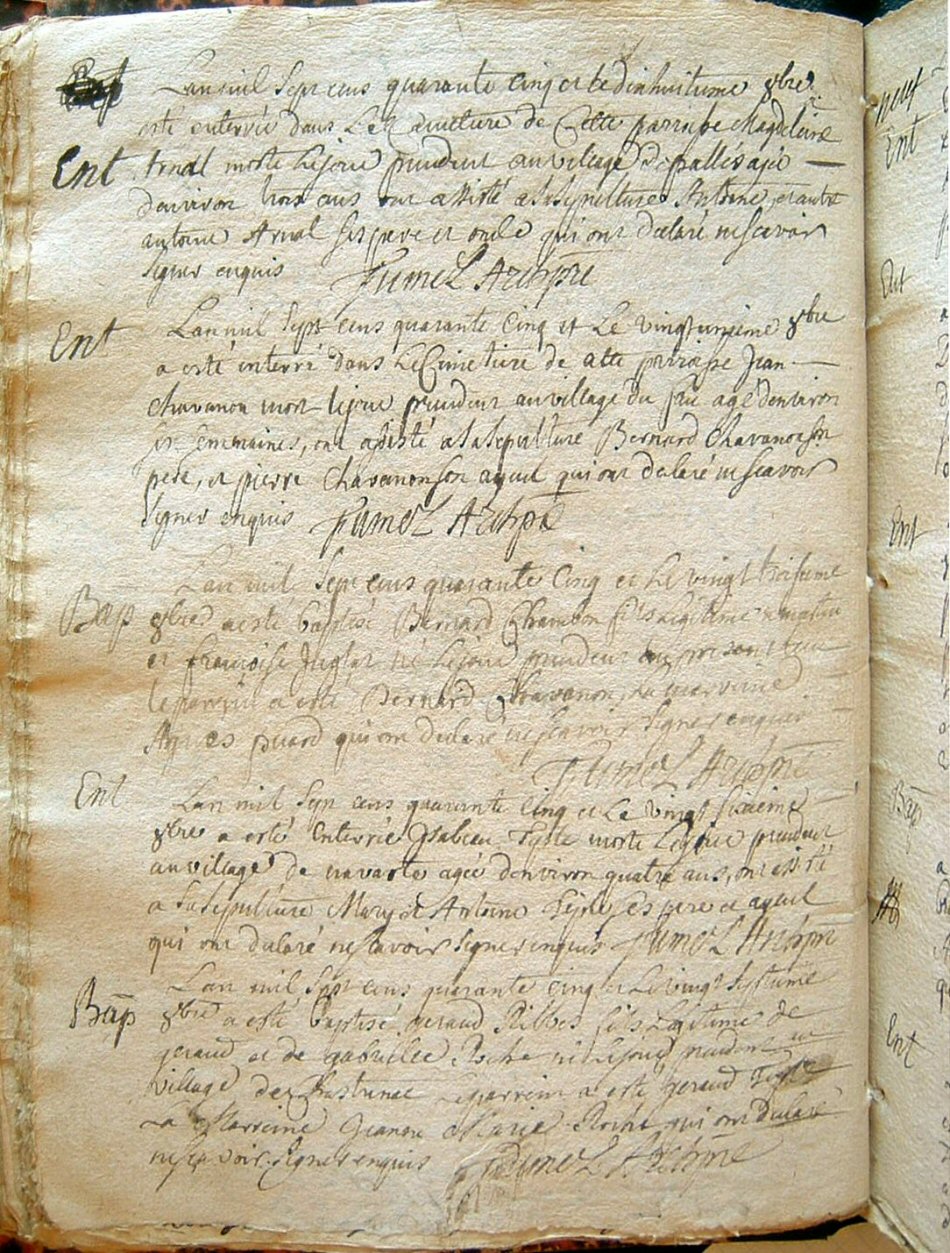 Lan mil Sept cens quarante Cinq et le dixhuitieme 8bre
esté enterrée dans Le Cimetiere de Cette parroisse Magdeleine
Ent Arnal morte Lejour precedent au village de pallés agée
denviron trois ans ont assisté a sa sepulture Antoine, et autre
antoine Arnal ses pere et oncle qui ont declaré ne scavoir
signer enquis Fumel Archpre
Ent Lan mil Sept cens quarante Cinq et Le vingtunieme 8bre
a esté enterré dans Le Cimetiere de cette parroisse Jean
Chavanon mort lejour precedent au village du agé denviron
six Semmaines, ont assisté a sa sepulture Bernard Chavanon son
pere, et pierre Chavanon son ayeul qui ont declaré ne scavoir
signer enquis Fumel Archpre
Lan mil Sept cens quarante Cinq et Le vingt troisieme
Bap 8bre a esté baptisé Bernard Chambon fils Legitime a martin
et francoise Juglar né Lejour precedent
le parrein a esté Bernard Chavanon, La marreine
Agnes qui ont declaré ne scavoir signer enquis
Fumel Archpre
Ent Lan mil Sept cens quarante Cinq et Le vingt sixieme
8bre a esté Enterrée Ysabeau morte Lejour precedent
au village de navaste agée denviron quatre ans, ont assisté
a sa sepulture et Antoine ses pere et ayeul
qui ont declaré ne scavoir signer enquis Fumel Archpre
Lan mil Sept cens quarante Cinq et Le vingt septieme
Bap 8bre a esté baptisé geraud Ribbes fils Legitime de
geraud et de gabrielle Roche né Lejour precedent au
village de Leparrein a esté geraud
La Marreine Jeanne Marie Roche qui ont declaré
ne scavoir signer enquis Fumel Archpre
Ent
Ent
Ent
Bap
Ent